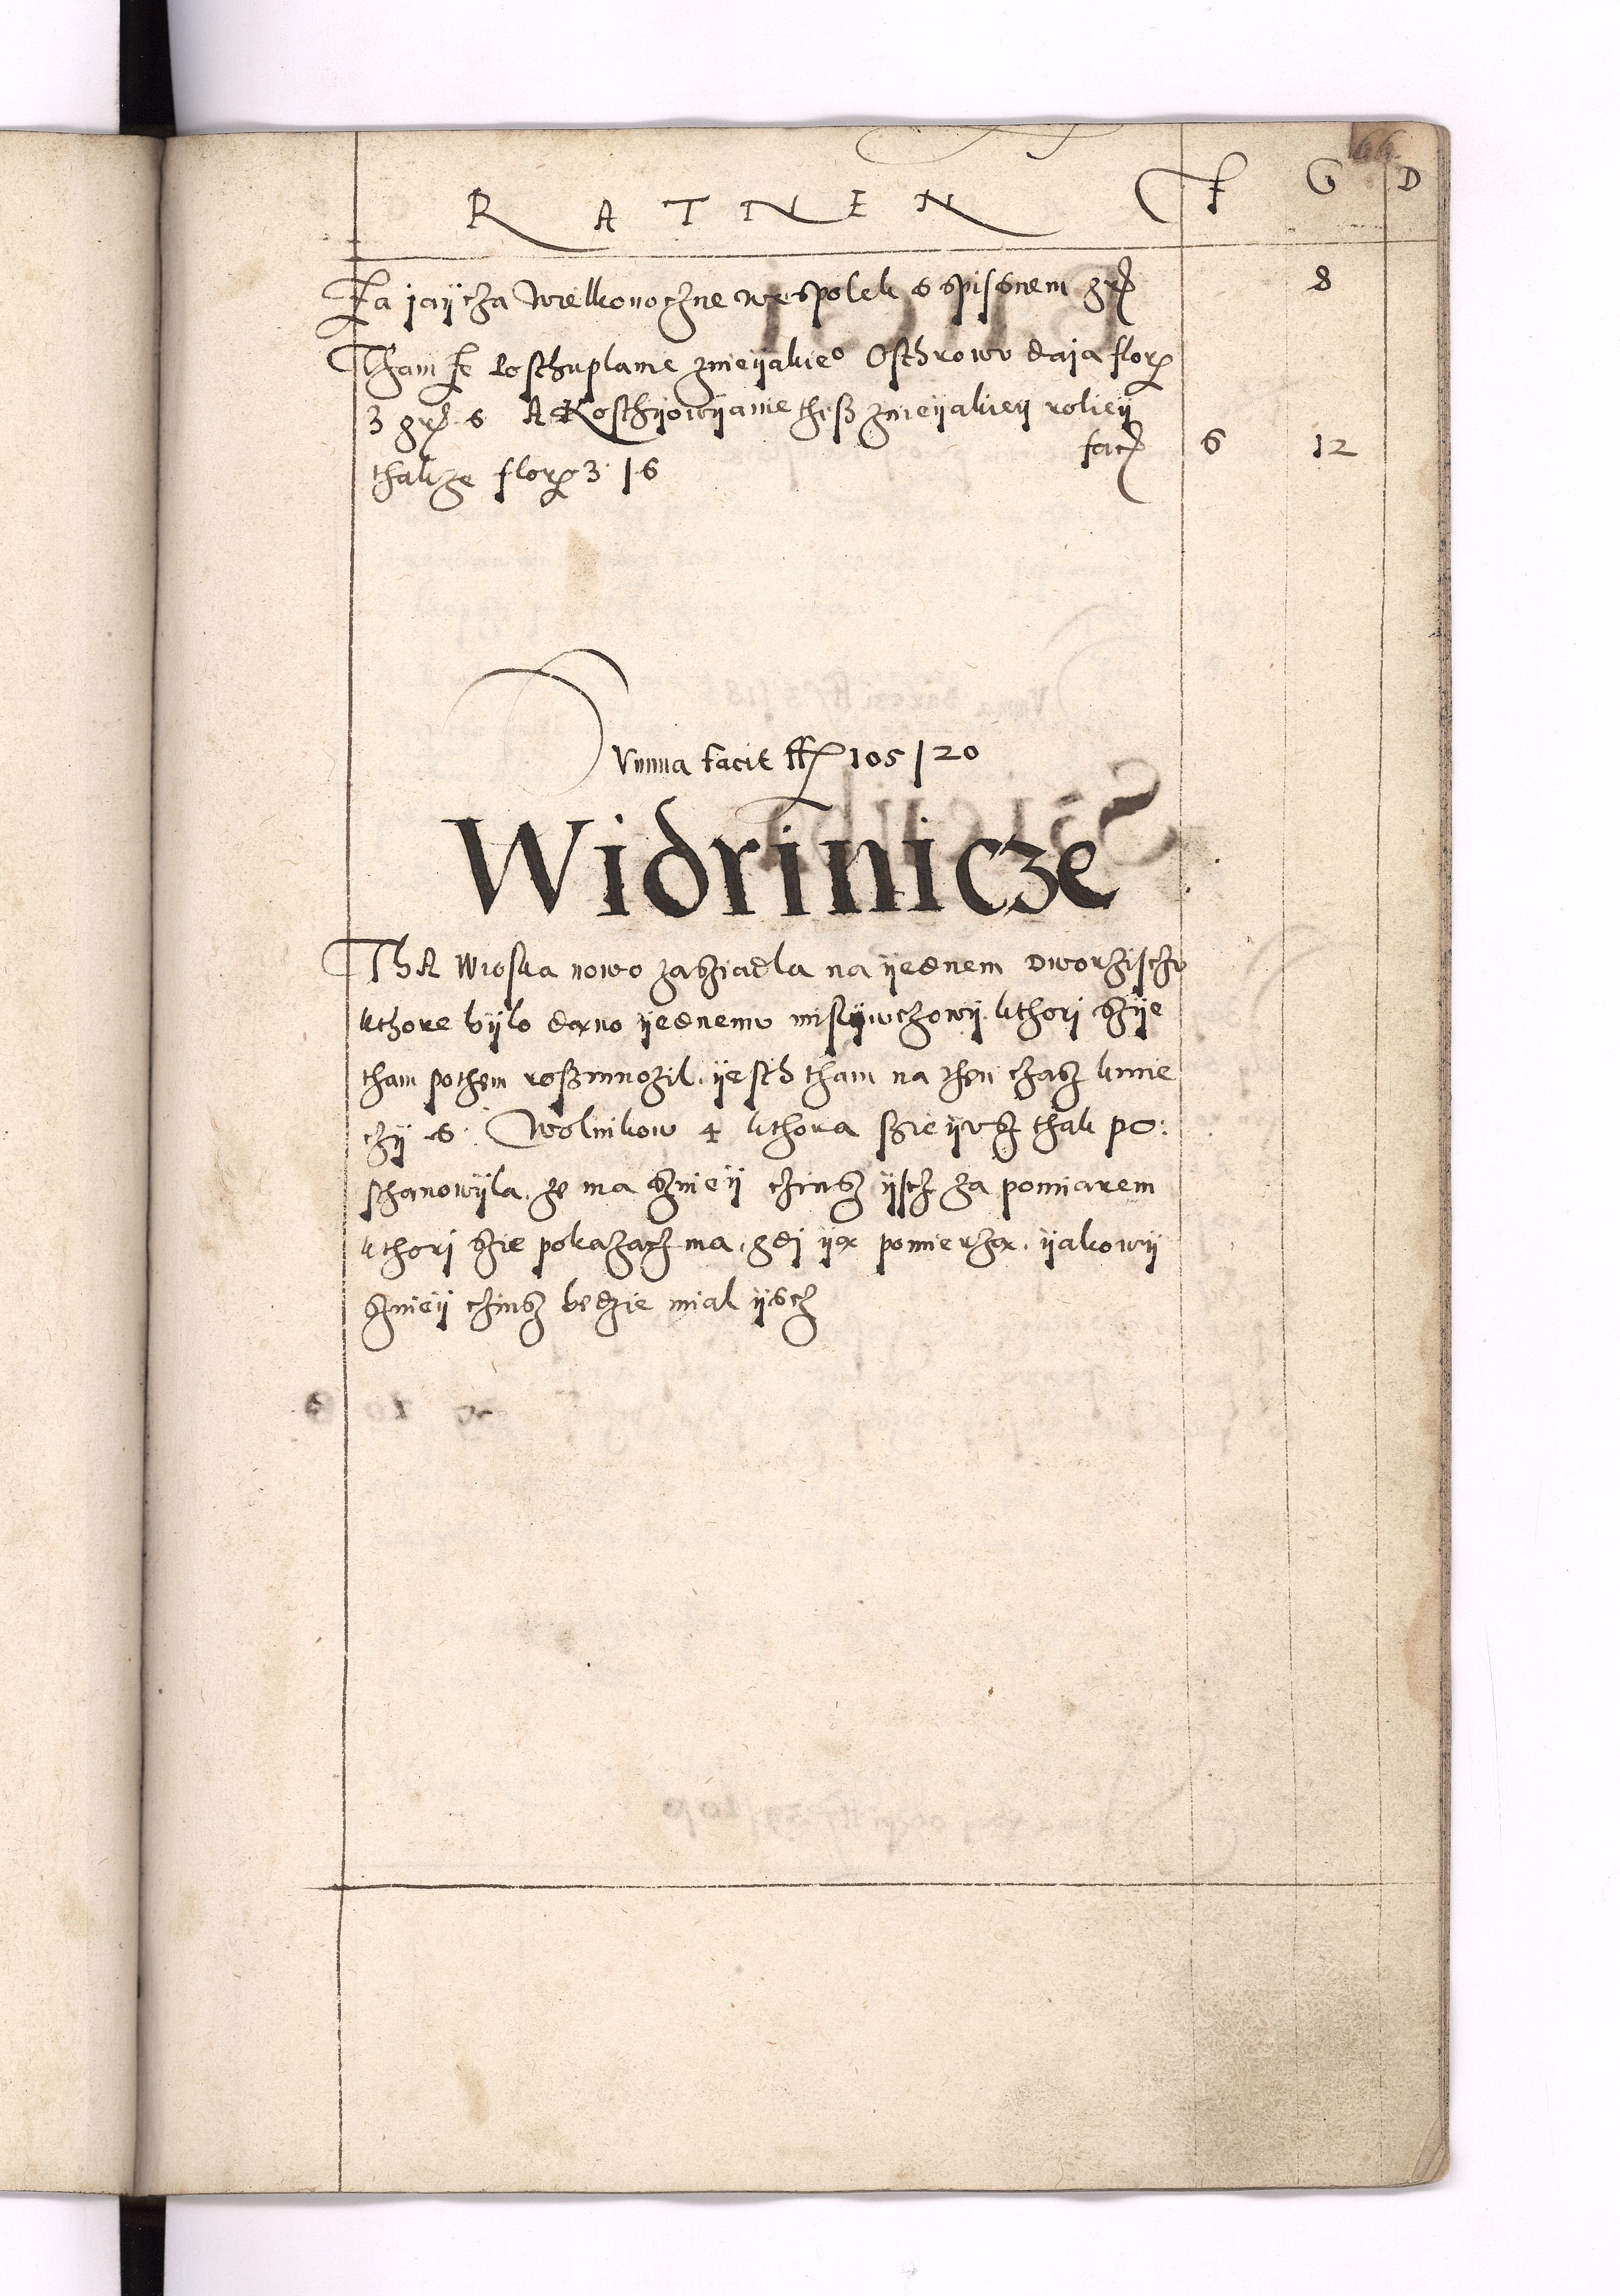 66
R A T N E N F G D
Za jaÿcża Wielkonoczne wespolek s spisnem gr 8
Tham ze losthuplanie znieÿakieo Osthrowv daja flor
3 gr 6 A Kosthÿowÿanie theß znieÿakieÿ rolieÿ
thakze flor 3 | 6 facit 6 12
Summa facit ff 105 | 20
Widrinicze
ThA Wioska nowo zasziadla na ÿednem dworziscżv
kthore bÿlo dano ÿednemv misliwczowÿ kthori szÿe
tham pothem roßmnozil. ÿesth tham na then czasz kmie
czÿ 6. Wolnikow 4 kthora szieÿvsz thak po:
sthanowÿla. ze ma sznieÿ czinsz ÿscz za pomiarem
kthori szie pokazacz ma. gdj ÿa pomierza. ÿakowÿ
sznieÿ czinsz bedzie mial ÿscz